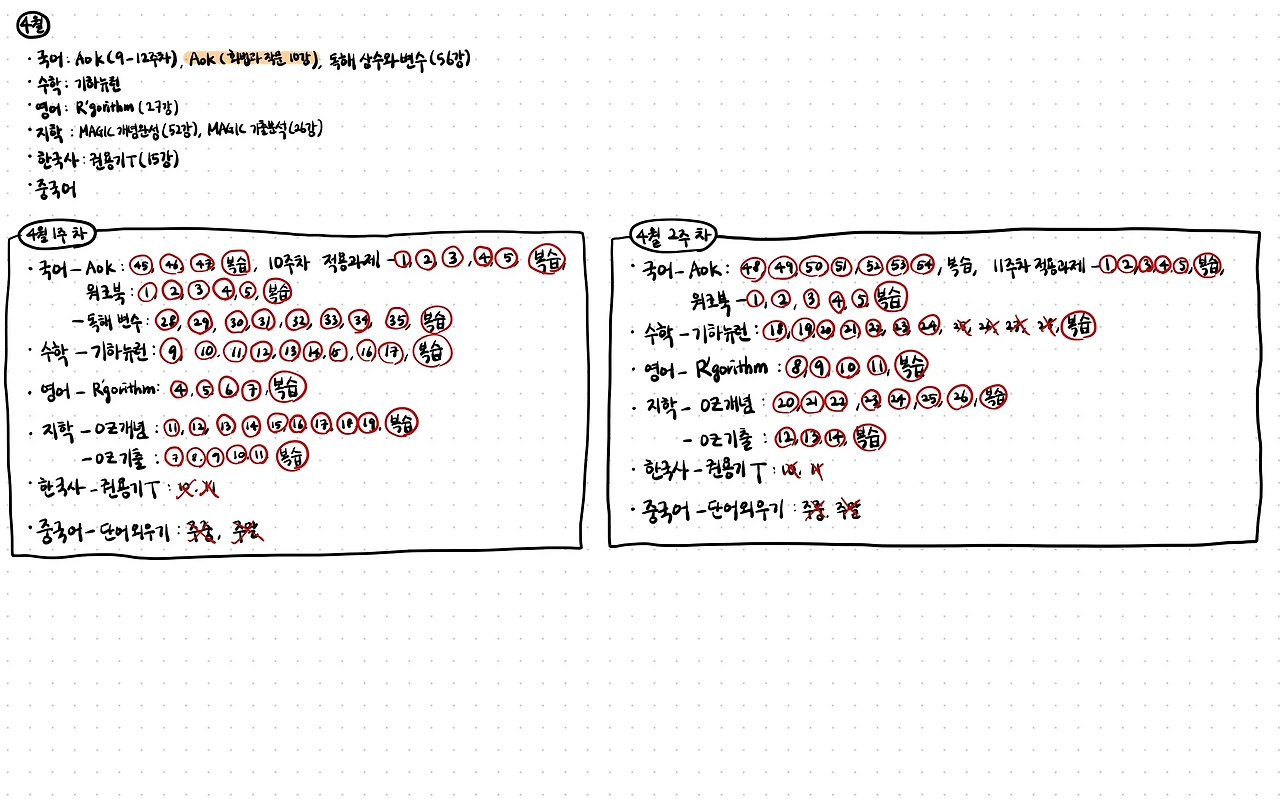 4월
· 국어 : Aok (9-12주차), Aok (화법과 작문 10강), 독해 상수와 변수 (56강)
· 수학 : 기하뉴런
· 영어 : R'gorithm (27강)
· 지학 : MAGIC 개념완성 (52강), MAGIC 기출분석 (26강)
· 한국사 : 권용기T (15강)
· 중국어
4월 1주차
· 국어 - Aok : 45, 46, 47, 복습, 10주차 적용과제 - 1, 2, 3, 4, 5 복습,
워크북 : 1, 2, 3, 4, 5, 복습
- 독해 변수 : 28, 29, 30, 31, 32, 33, 34, 35, 복습
· 수학 - 기하뉴런 : 9, 10, 11, 12, 13, 14, 15, 16, 17, 복습
· 영어 - R'gorithm : 4, 5, 6, 7, 복습
· 지학 - OZ개념 : 11, 12, 13, 14, 15, 16, 17, 18, 19, 복습
- OZ기출 : 7, 8, 9, 10, 11 복습
· 한국사 - 권용기T : 10, 11
· 중국어 - 단어외우기 : 주중, 주말
4월 2주차
· 국어 - Aok : 48, 49, 50, 51, 52, 53, 54, 복습, 11주차 적용과제 - 1, 2, 3, 4, 5, 복습,
워크북 - 1, 2, 3, 4, 5 복습
· 수학 - 기하뉴런 : 18, 19, 20, 21, 22, 23, 24, 25, 26, 27, 28, 복습
· 영어 - R'gorithm : 8, 9, 10, 11, 복습
· 지학 - OZ개념 : 20, 21, 22, 23, 24, 25, 26, 복습
- OZ기출 : 12, 13, 14, 복습
· 한국사 - 권용기T : 10, 11
· 중국어 - 단어외우기 : 주중, 주말